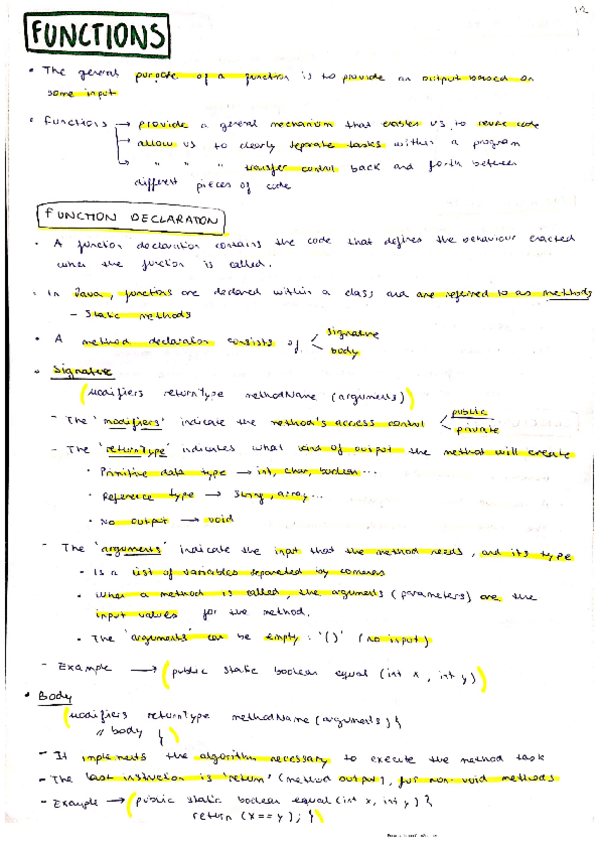 FUNCTIONS
• The general purpose of a function is to provide an output based on
some input
• Functions → provide a general mechanism that enables us to reuse code
→ allow us to clearly separate tasks within a program
→ " " " transfer control back and forth between
different pieces of code
FUNCTION DECLARATION
• A function declaration contains the code that defines the behaviour enacted
when the function is called.
• In Java, functions are declared within a class and are referred to as methods
- Static methods
• A method declaration consists of < signature
body
• Signature
(modifiers returnType methodName (arguments))
- The 'modifiers' indicate the method's access control < public
private
- The 'returnType' indicates what kind of output the method will create
• Primitive data type → int, char, boolean...
• Reference type → String, array...
• No output → void
- The 'arguments' indicate the input that the method needs, and its type
• Is a list of variables separated by commas
• When a method is called, the arguments (parameters) are the
input values for the method.
• The 'arguments' can be empty: '()' (no input)
- Example → (public static boolean equal (int x, int y))
• Body
(modifiers returnType methodName (arguments) {
// body })
- It implements the algorithm necessary to execute the method task
- The last instruction is 'return' (method output), for non-void methods
- Example → (public static boolean equal (int x, int y) {
return (x==y); })